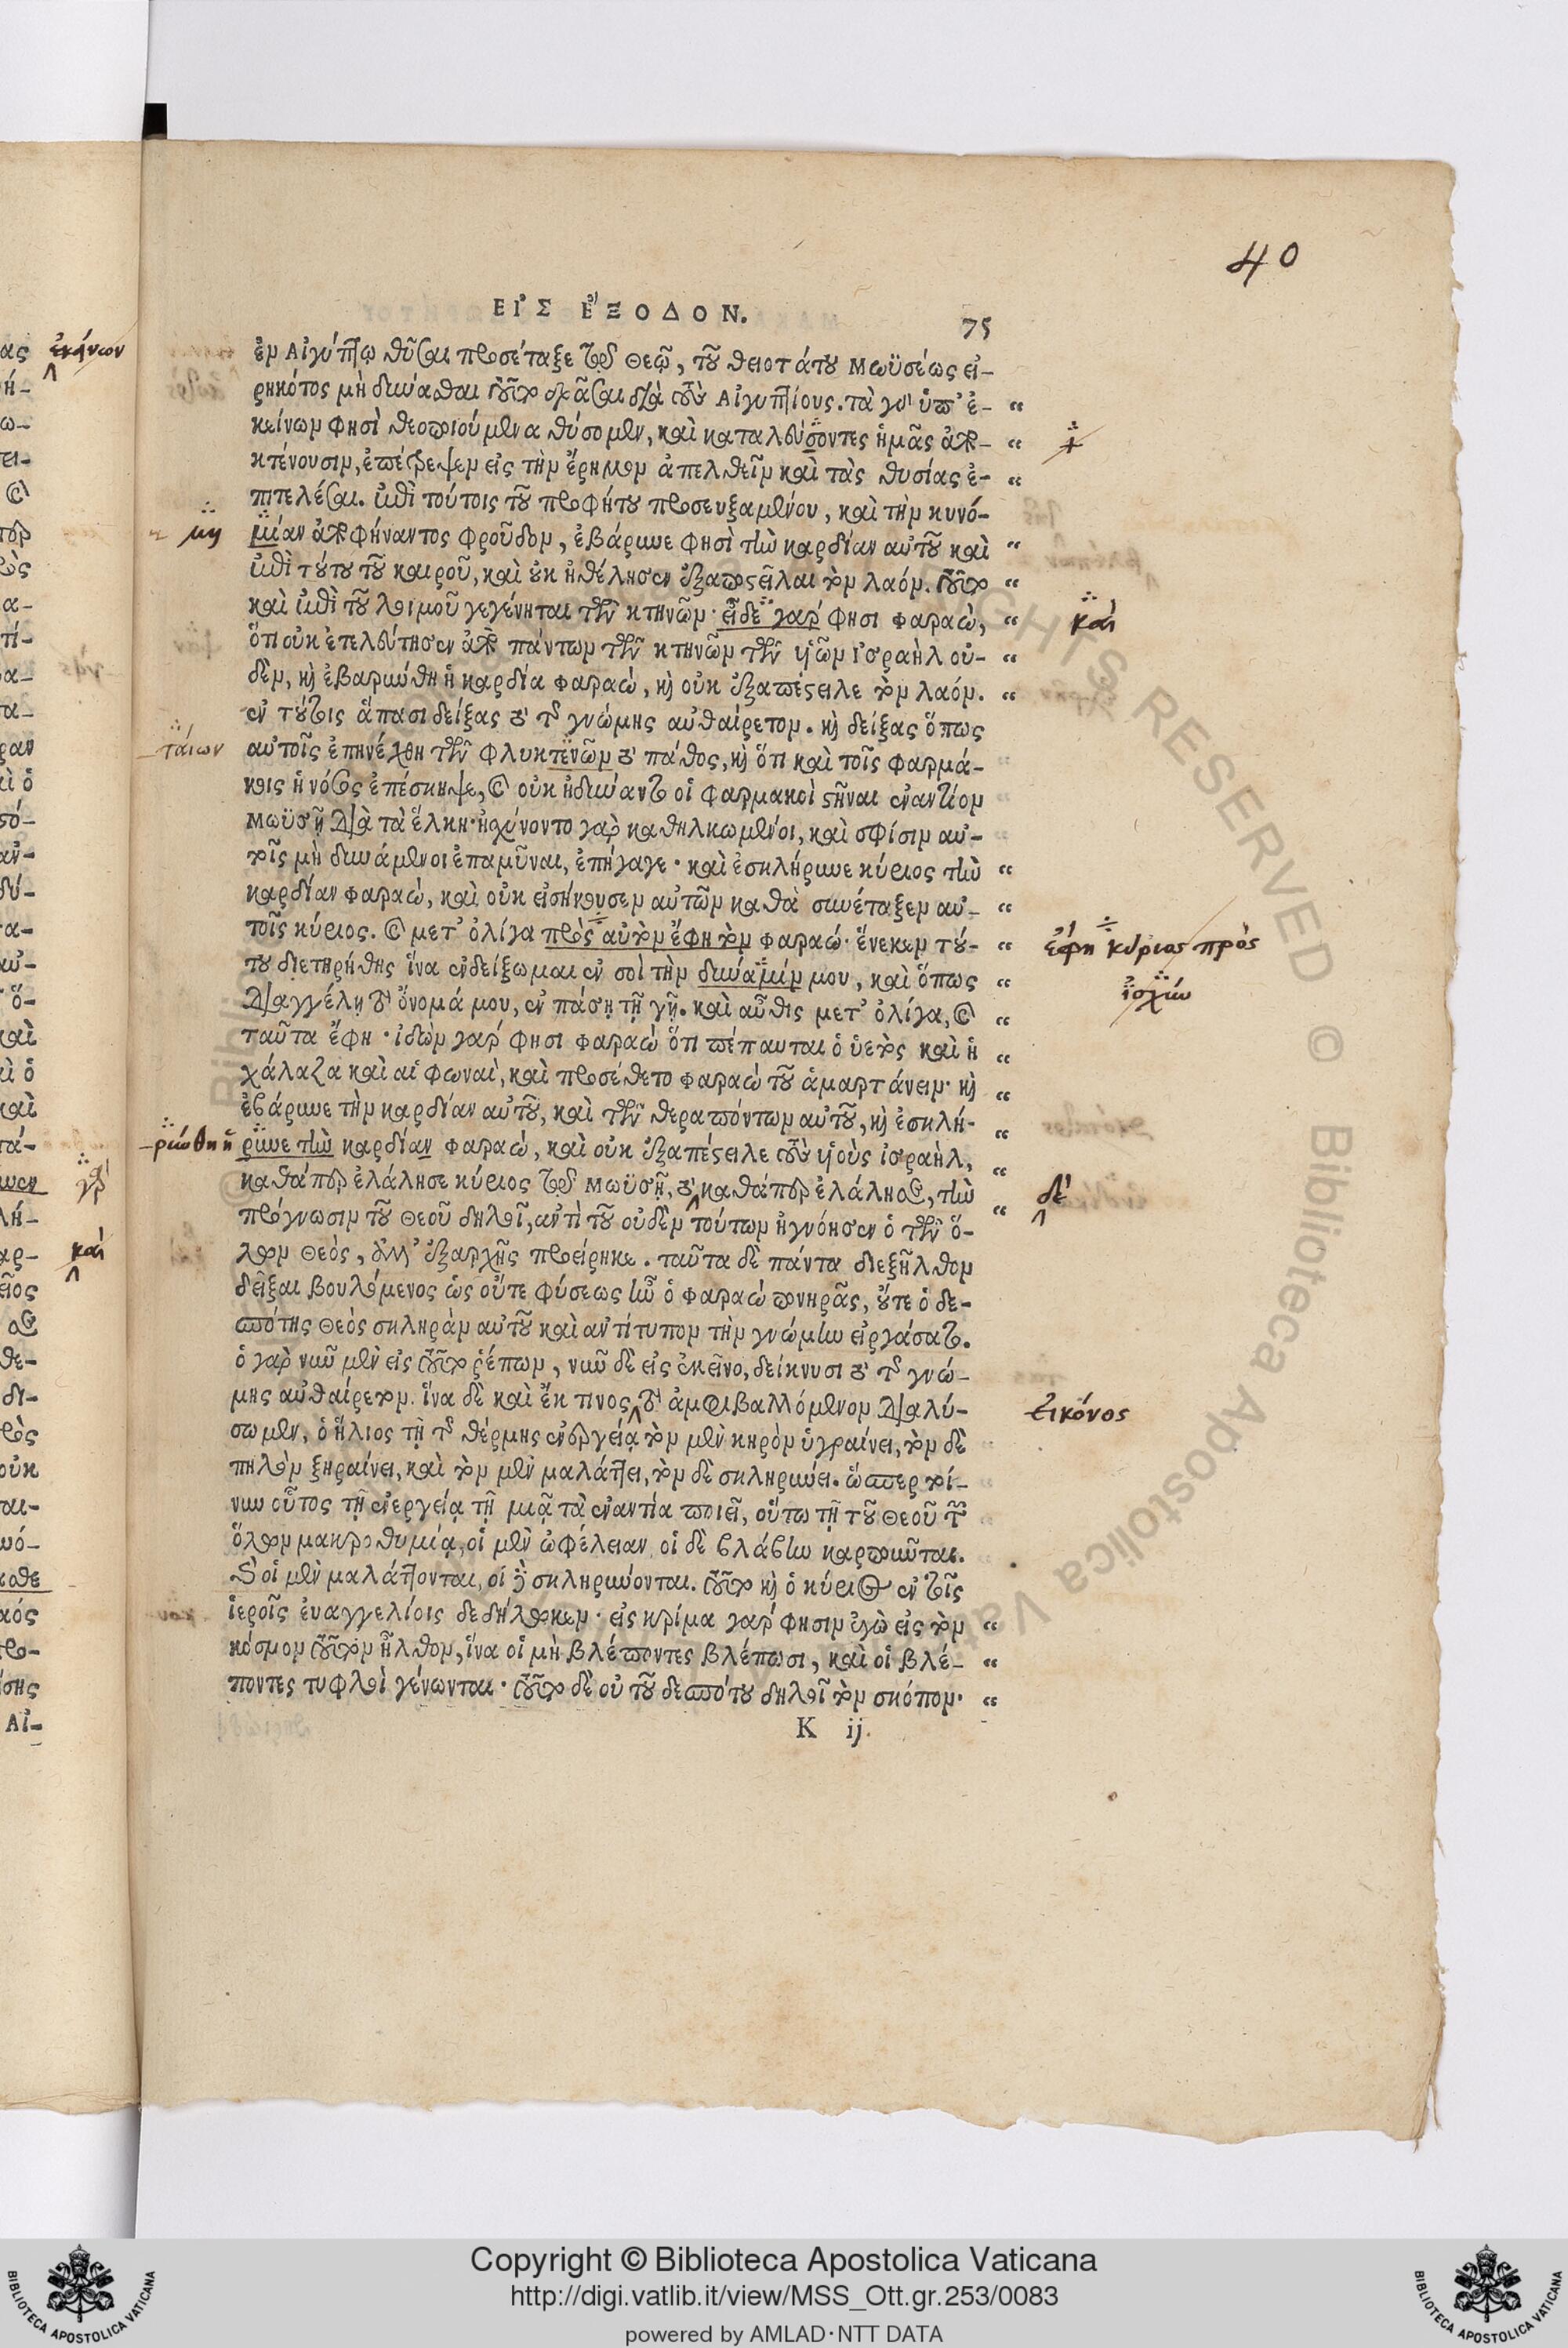 40
ΕΙ᾿Σ Ε᾿ΞΟΔΟΝ. 75
ἐν Αἰγύπτῳ θῦσαι προσέταξε τῷ θεῷ, τοῦ θειοτάτου Μωϋσέως εἰ-
ρηκότος μὴ δύναθαι τοῦτο δρᾶσαι διὰ τοὺς Αἰγυπτίους. τὰ γὰρ ὑπ᾿ ἐ- “
κείνων φησὶ θεοποιούμενα θύσομεν, καὶ καταλεύσοντες ἡμᾶς ἀπο- “
κτένουσιν, ἐπέτρεψεν εἰς τὴν ἔρημον ἀπελθεῖν καὶ τὰς θυσίας ἐ- “
πιτελέσαι. ἐπὶ τούτοις τοῦ προφήτου προσευξαμένου, καὶ τὴν κυνό-
μη μίαν ἀποφήναντος φροῦδον, ἐβάρυνε φησὶ τὴν καρδίαν αὐτοῦ καὶ “
ἐπὶ τούτου τοῦ καιροῦ, καὶ οὐκ ἠθέλησεν ἐξαποστεῖλαι τὸν λαόν. τοῦτο “
καὶ ἐπὶ τοῦ λοιμοῦ γεγένηται τῶν κτηνῶν· εἶδε γάρ φησι Φαραὼ, “ καὶ
ὅτι οὐκ ἐτελεύτησεν ἀπὸ πάντων τῶν κτηνῶν τῶν υἱῶν Ἰσραὴλ οὐ- “
δὲν, καὶ ἐβαρύνθη ἡ καρδία Φαραὼ, καὶ οὐκ ἐξαπέστειλε τὸν λαόν. “
ἐν τούτοις ἅπασι δείξας τὸ τῆς γνώμης αὐθαίρετον. καὶ δείξας ὅπως
ταίων αὐτοῖς ἐπηνέχθη τῶν φλυκτενῶν τὸ πάθος, καὶ ὅτι καὶ τοῖς φαρμά-
κοις ἡ νόσος ἐπέσκηψε, καὶ οὐκ ἠδύναντο οἱ φαρμακοὶ στῆναι ἐναντίον
Μωϋσῆ διὰ τὰ ἕλκη· ἠσχύνοντο γὰρ καθηλκωμένοι, καὶ σφίσιν αὐ-
τοῖς μὴ δυνάμενοι ἐπαμῦναι, ἐπήγαγε· καὶ ἐσκλήρυνε κύριος τὴν “
καρδίαν Φαραὼ, καὶ οὐκ εἰσήκουσεν αὐτῶν καθὰ συνέταξεν αὐ- “
τοῖς κύριος. καὶ μετ᾿ ὀλίγα πρὸς αὐτὸν ἔφη τὸν Φαραώ· ἕνεκεν τού- “ ἔφη κύριος πρὸς
του διετηρήθης ἵνα ἐνδείξωμαι ἐν σοὶ τὴν δύναμίν μου, καὶ ὅπως “ ἰσχὺν
διαγγέλῃ τὸ ὄνομά μου, ἐν πάσῃ τῇ γῇ. καὶ αὖθις μετ᾿ ὀλίγα, καὶ “
ταῦτα ἔφη· ἰδὼν γάρ φησι Φαραὼ ὅτι πέπαυται ὁ ὑετὸς καὶ ἡ “
χάλαζα καὶ αἱ φωναὶ, καὶ προσέθετο Φαραὼ τοῦ ἁμαρτάνειν· καὶ “
ἐβάρυνε τὴν καρδίαν αὐτοῦ, καὶ τῶν θεραπόντων αὐτοῦ, καὶ ἐσκλή- “
ρύνθη ἡ ρυνε τὴν καρδίαν Φαραὼ, καὶ οὐκ ἐξαπέστειλε τοὺς υἱοὺς Ἰσραὴλ, “
καθάπερ ἐλάλησε κύριος τῷ Μωϋσῇ, τὸ καθάπερ ἐλάλησε, τὴν “ δὲ
πρόγνωσιν τοῦ θεοῦ δηλοῖ, ἀντὶ τοῦ οὐδὲν τούτων ἠγνόησεν ὁ τῶν ὅ-
λων θεὸς, ἀλλ᾿ ἐξαρχῆς προείρηκε. ταῦτα δὲ πάντα διεξῆλθον
δεῖξαι βουλόμενος ὡς οὔτε φύσεως ἦν ὁ Φαραὼ πονηρᾶς, οὔτε ὁ δε-
σπότης θεὸς σκληρὰν αὐτοῦ καὶ ἀντίτυπον τὴν γνώμην εἰργάσατο.
ὁ γὰρ νῦν μὲν εἰς τοῦτο ῥέπων, νῦν δὲ εἰς ἐκεῖνο, δείκνυσι τὸ τῆς γνώ-
μης αὐθαίρετον. ἵνα δὲ καὶ ἔκ τινος τὸ ἀμφιβαλλόμενον διαλύ- εἰκόνος
σωμεν, ὁ ἥλιος τῇ τῆς θέρμης ἐνεργείᾳ τὸν μὲν κηρὸν ὑγραίνει, τὸν δὲ
πηλὸν ξηραίνει, καὶ τὸν μὲν μαλάττει, τὸν δὲ σκληρύνει. ὥσπερ τοί-
νυν οὗτος τῇ ἐνεργείᾳ τῇ μιᾷ τὰ ἐναντία ποιεῖ, οὕτω τῇ τοῦ θεοῦ τῶν
ὅλων μακροθυμίᾳ, οἱ μὲν ὠφέλειαν, οἱ δὲ βλάβην καρποῦνται.
καὶ οἱ μὲν μαλάττονται, οἱ δὲ σκληρύνονται. τοῦτο καὶ ὁ κύριος ἐν τοῖς
ἱεροῖς ἐυαγγελίοις δεδήλωκεν· εἰς κρίμα γάρ φησιν ἐγὼ εἰς τὸν “
κόσμον τοῦτον ἦλθον, ἵνα οἱ μὴ βλέποντες βλέπωσι, καὶ οἱ βλέ- “
ποντες τυφλοὶ γένωνται· τοῦτο δὲ οὐ τοῦ δεσπότου δηλοῖ τὸν σκόπον· “
K ij.
Copyright © Biblioteca Apostolica Vaticana
http://digi.vatlib.it/view/MSS_Ott.gr.253/0083
powered by AMLAD·NTT DATA